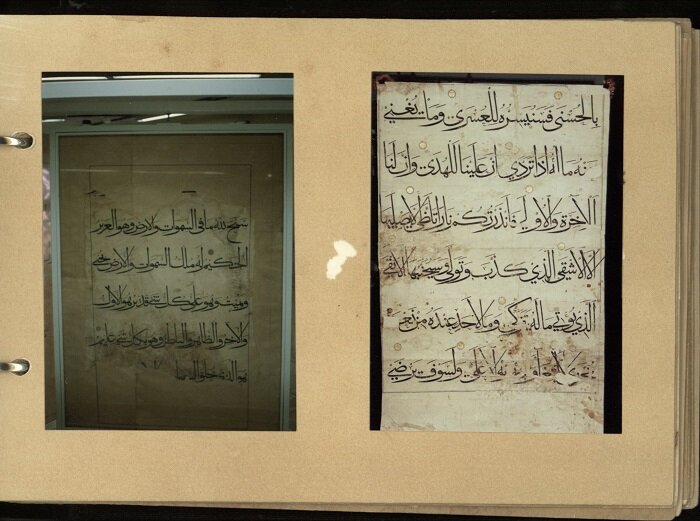 بالحسنى فسنيسره للعسرى وما يغني
نه ماله اذا تردى ان علينا للهدى وان لنا
للاخرة والاولى فانذرتكم نارا تلظى لا يصليها
الا الاشقى الذي كذب وتولى وسيجنبها الاتقى
الذي يؤتي ماله يتزكى وما لاحد عنده من نعمة
الاعلى ولسوف يرضى
سبح لله ما في السموات والارض وهو العزيز
الحكيم له ملك السموات والارض يحيي
ويميت وهو على كل شئ قدير هو الاول
والاخر والظاهر والباطن وهو بكل شئ عليم
هو الذي خلق السما